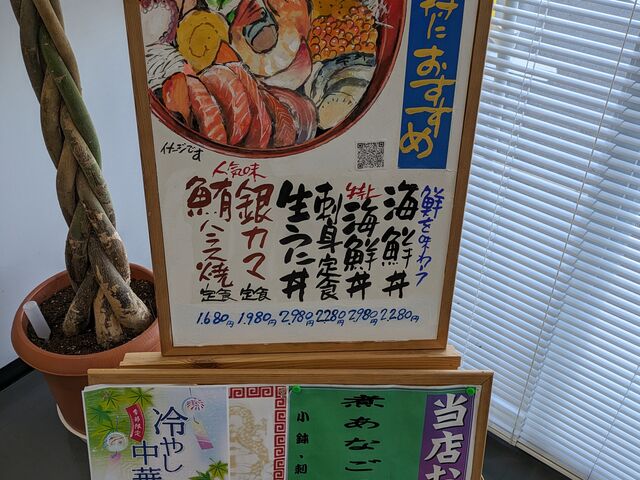 におすすめ
イメージです
鮮を味わう
海鮮丼
特上
海鮮丼
刺身定食
生うに丼
人気味
銀カマ
定食
鮪ハラス焼
定食
1.680円 1.980円 2.980円 2280円 2.980円 2.280円
当店お
煮あなご
小鉢・
季節限定
冷やし
中華